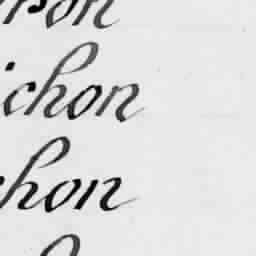 rson
ichon
chon